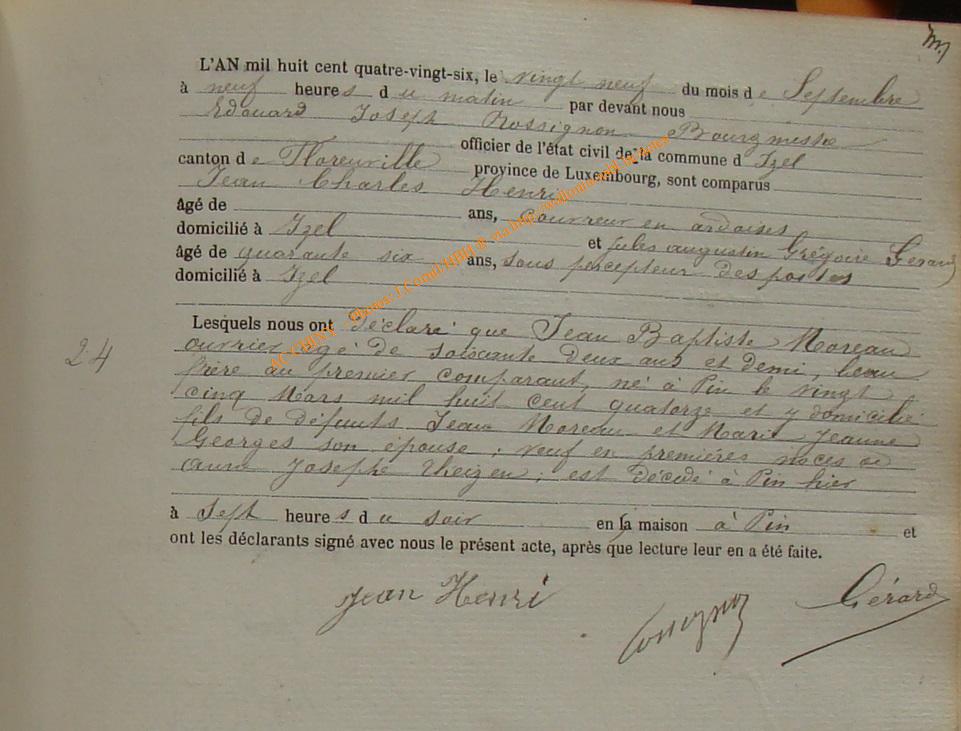 m
L'AN mil huit cent quatre-vingt-six, le vingt neuf du mois d e Septembre
à neuf heures du matin par devant nous
Edouard Joseph Rossignon Bourgmestre
officier de l'état civil de la commune d Izel
canton de Florenville province de Luxembourg, sont comparus
Jean Charles Henri
âgé de ans, couvreur en ardoises
domicilié à Izel et jules augustin Grégoire Gerard
âgé de quarante six ans, sous percepteur des postes
domicilié à Izel
Lesquels nous ont déclaré que Jean Baptiste Moreau
ouvrier agé de soixante deux ans et demi, beau
frère au premier comparant, né à Pin le vingt
cinq Mars mil huit cent quatorze et y domicilié
fils de défunts Jean Moreau et Marie Jeanne
Georges son épouse ; veuf en premières noces de
anne Josephe ; est décédé à Pin hier
24
à sept heures du soir en la maison à Pin et
ont les déclarants signé avec nous le présent acte, après que lecture leur en a été faite.
Jean Henri
Rossignon
Gérard